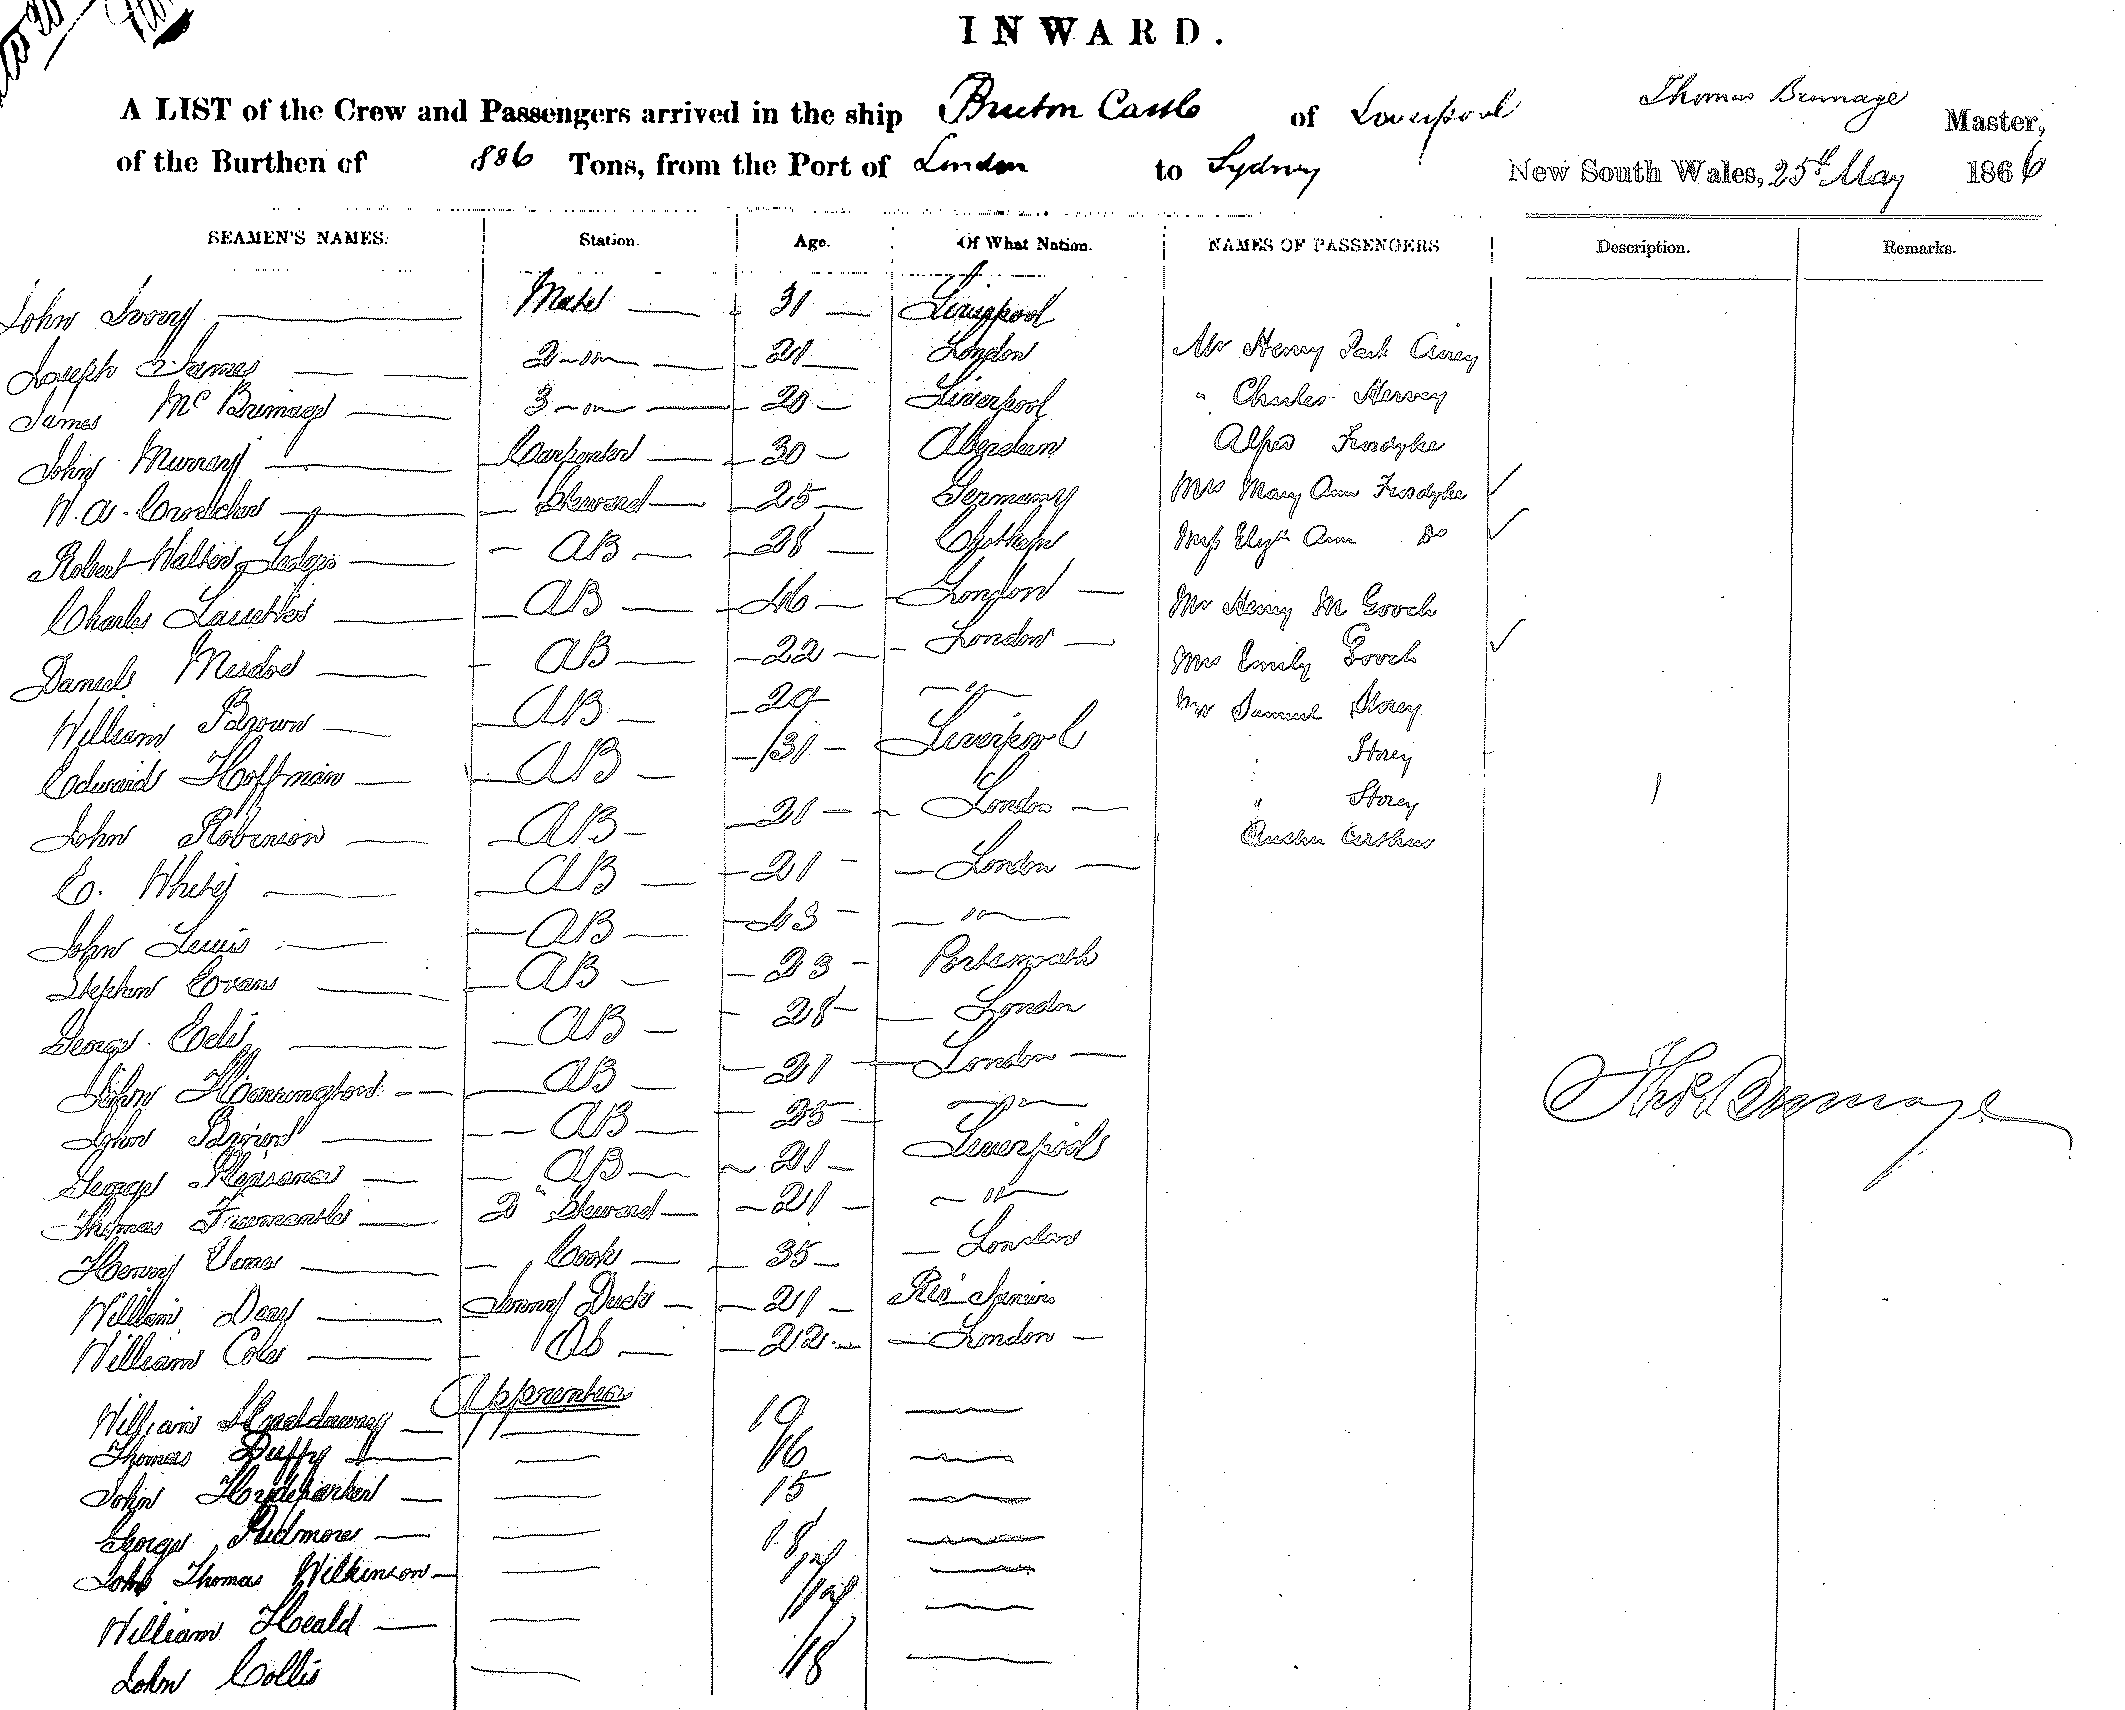 INWARD.
Thomas Brumage
A LIST of the Crew and Passengers arrived in the ship Castle of Liverpool Master,
of the Burthen of 886 Tons, from the Port of London to Sydney New South Wales, 25th May 1866
SEAMEN'S NAMES. Station. Age. Of What Nation. NAMES OF PASSENGERS Description. Remarks.
John Mate 31 Liverpool
Joseph James 2 - " 21 London Mr Henry Park Airey
James Mc Brumage 3 - " 20 Liverpool " Charles Hervey
John Murray Carpenter 30 Aberdeen Furdyke
W. A. Steward 25 Germany Mrs Mary Ann Furdyke ✓
Robert Walter AB 28 Miss Elizth Ann Do ✓
Charles AB 46 London Mr Henry M Gooch
Daniel AB 22 London Mrs Emily Gooch ✓
William Brown AB " Mr Samuel Storey
Edward Hoffman AB 31 Liverpool Storey
John Robinson AB 21 London " Storey
E. White AB 21 London Arthur
John Lewis AB 43 "
Stephen Evans AB 23 Portsmouth
George AB 28 London
John Harrington AB 21 London
John Brown AB 25 "
George AB 21 Liverpool
Thos Brumage
Thomas Fremantle 2d Steward 21 "
Henry Cook 35 London
William 21
William Cole Ab 22 London
Apprentices
William 19
Thomas Duffy 16
John Hydeparker 15
George Pudmore 18
John Thomas Wilkinson 17
William Heald
John Collis 18